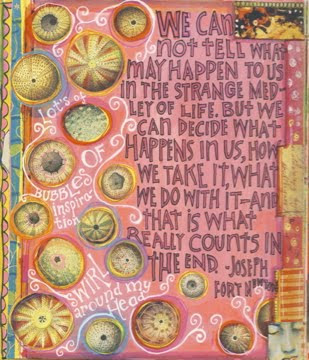 WE CAN
NOT TELL WHAT
MAY HAPPEN TO US
IN THE STRANGE MED-
LEY OF LIFE. BUT WE
CAN DECIDE WHAT
HAPPENS IN US, HOW
WE TAKE IT, WHAT
WE DO WITH IT—AND
THAT IS WHAT
REALLY COUNTS IN
THE END. -JOSEPH
FORT NEWTON
Lots of
BUBBLES OF
Inspira-
tion
SWIRL
around my
Head